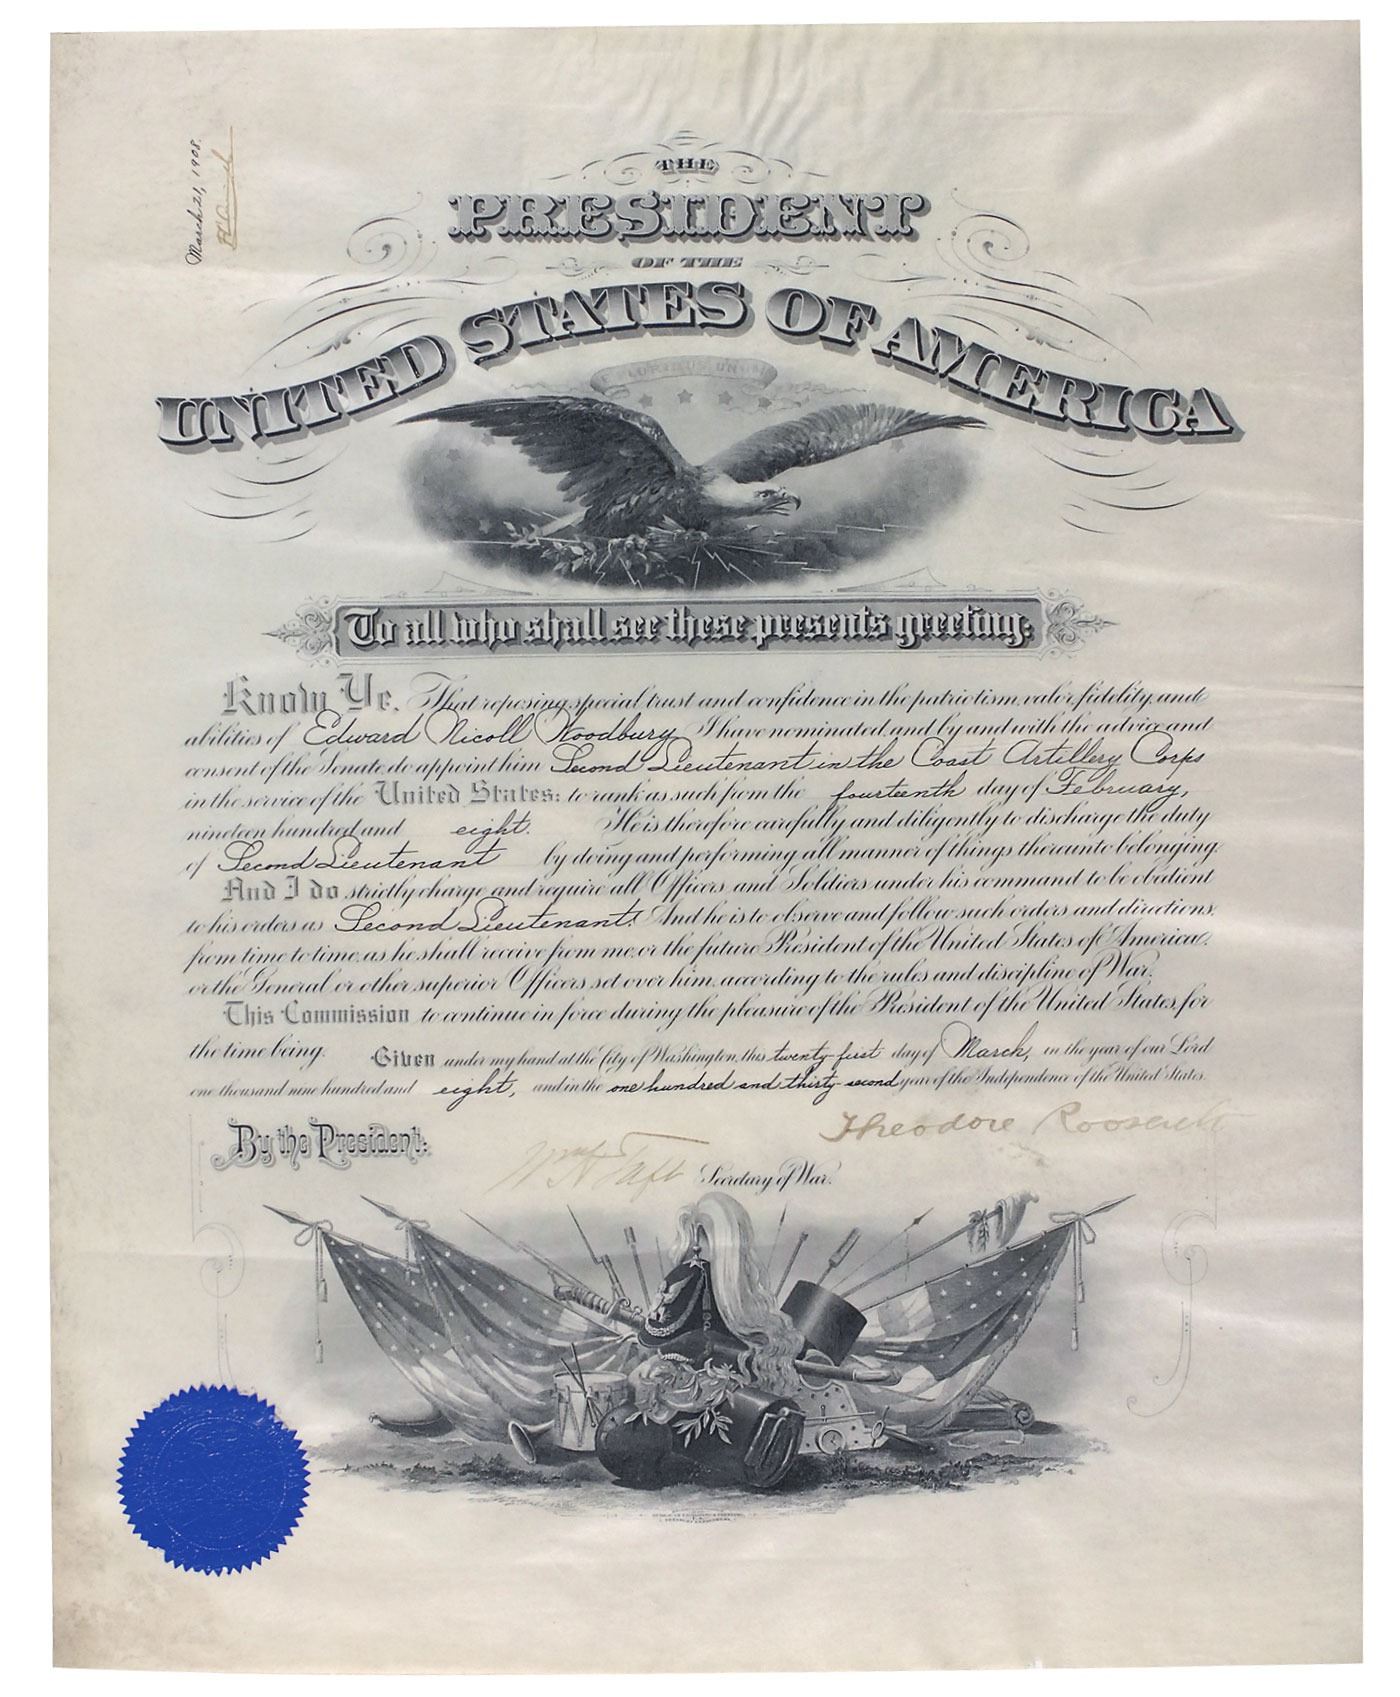 March 21, 1908.
THE
PRESIDENT
OF THE
UNITED STATES OF AMERICA
PLURIBUS UNUM
To all who shall see these presents greeting:
Know Ye, That reposing special trust and confidence in the patriotism, valor, fidelity, and
abilities of Edward Nicoll Woodbury, I have nominated, and by and with the advice and
consent of the Senate, do appoint him Second Lieutenant in the Coast Artillery Corps
in the service of the United States: to rank as such from the fourteenth day of February,
nineteen hundred and eight. He is therefore carefully and diligently to discharge the duty
of Second Lieutenant by doing and performing all manner of things thereunto belonging.
And I do strictly charge, and require all Officers and Soldiers under his command to be obedient
to his orders as Second Lieutenant. And he is to observe and follow such orders and directions,
from time to time, as he shall receive from me, or the future President of the United States of America,
or the General or other superior Officers set over him, according to the rules and discipline of War.
This Commission to continue in force during the pleasure of the President of the United States, for
the time being. Given under my hand at the City of Washington, this twenty-first day of March, in the year of our Lord
one thousand nine hundred and eight, and in the one hundred and thirty-second year of the Independence of the United States.
By the President: Theodore Roosevelt
Wm H Taft Secretary of War.